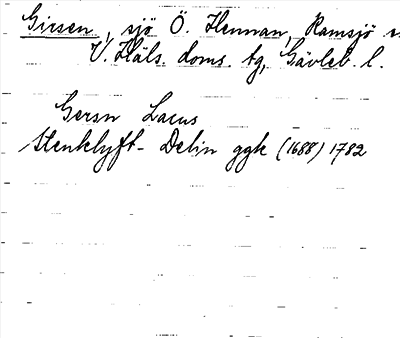 Girsen, sjö Ö. Hennan, Ramsjö s
V. Häls. doms. tg, Gävleb. l.
Gersn Lacus
Stenklyft- Delin ggk (1688) 1782